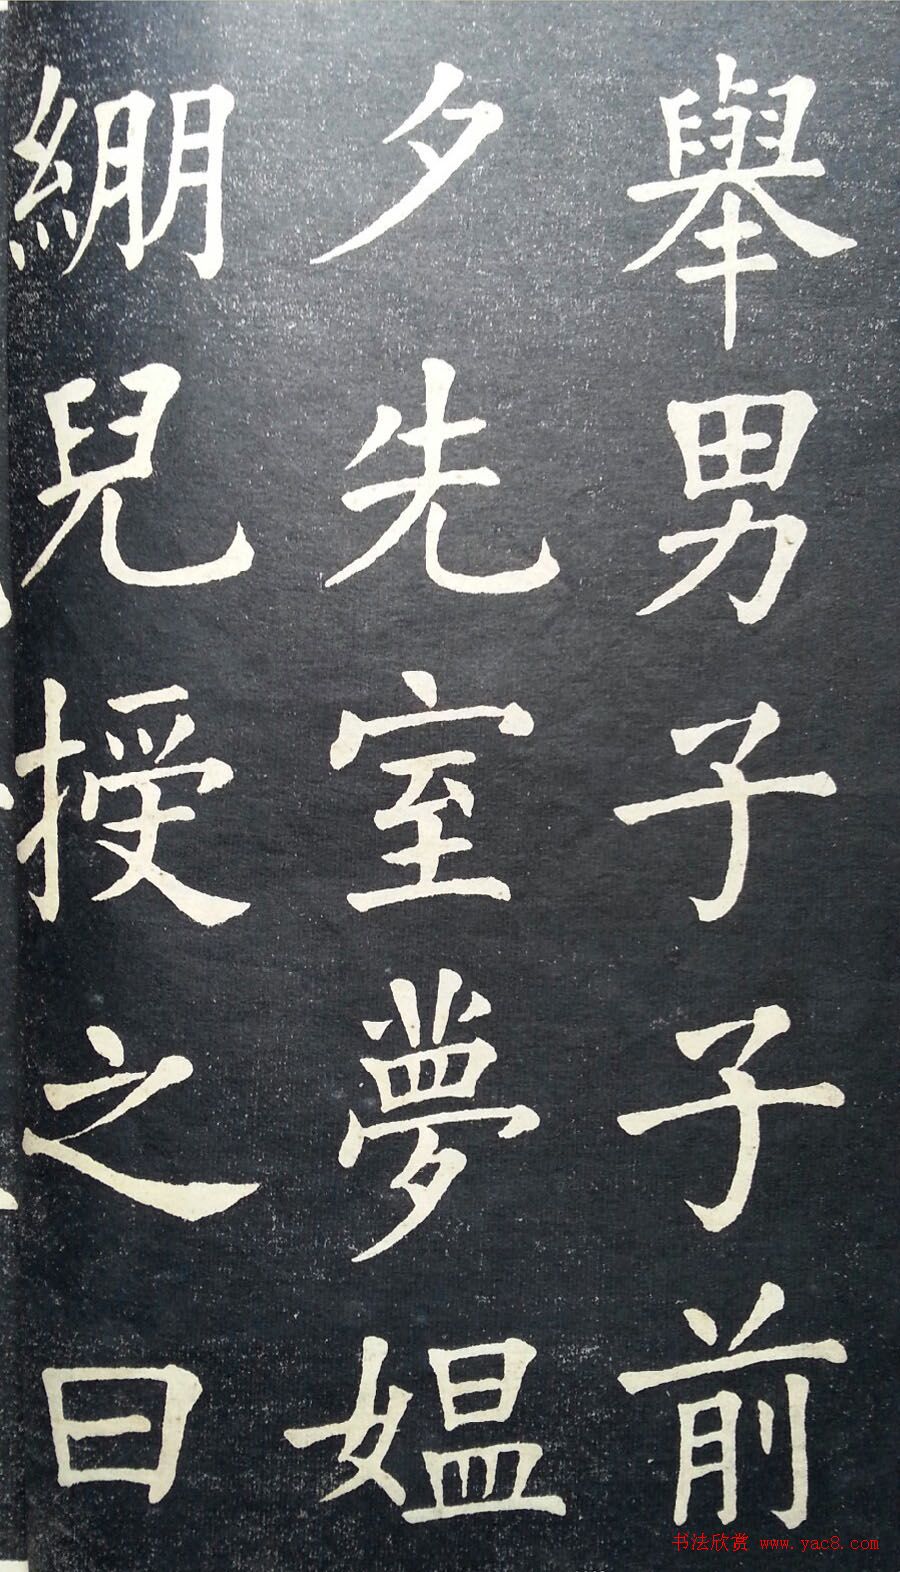 舉男子子前
夕先室夢媪
繃兒授之曰
书法欣赏 www.yac8.com